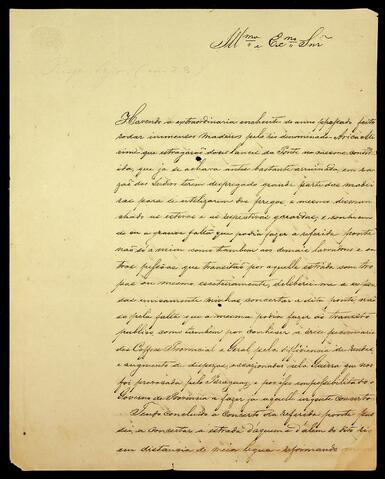 Illmo. e Exmo. Snr.
Havendo a extraordinaria enchente do anno passado feito
rodar immensos madeiros pelo rio denominado Aricá-
mirim que estragarão dous lances da Ponte no mesmo construi-
da, que já se achava antes bastante arruinada, em ra-
zão dos Indios terem despregado grande parte das madei-
ras para se utelizarem dos pregos e mesmo desman-
chado os esteios e as respectivas goardas; e conhecen-
do eu a grave falta que podia fazer a referida ponte
não só a mim como tambem aos demais lavradores e ou-
tras pessôas que transitão por aquella estrada com tro-
pas ou mesmo escoteiramente, deliberei-me a expensas
unicamente minhas concertar a dita ponte, não
só pela falta que a mesma podia fazer ao transito
publico como tambem por conhecer a crise pecuniaria
dos Coffres Provincial e Geral pela difficiencia de rendas
e augmento de dispezas, occazionados pela Guerra que nos
foi provocada pelo Paraguay, e por isso impossibilitado o
Governo da Provincia a fazer já aquelle urgente concerto.
Tendo concluido o concerto da referida ponte pas-
sei a concertar a estrada d'aquem e d'além do dito rio
em distancia de meia legua - reformando